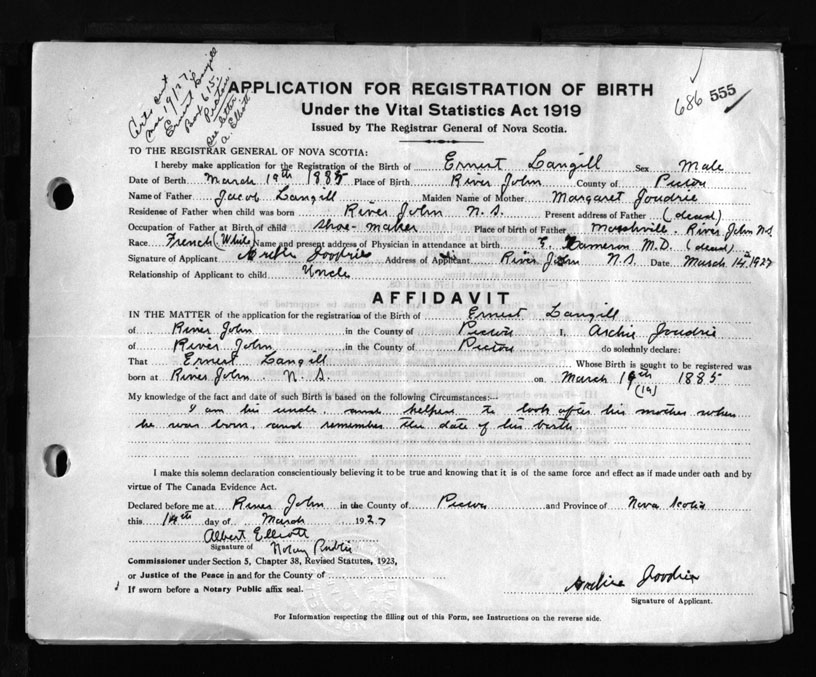 Certs sent
Mar 19/27
Ernest Langill
Box 615
Pictou
See letter
A. Elliott
686 555
APPLICATION FOR REGISTRATION OF BIRTH
Under the Vital Statistics Act 1919
Issued by The Registrar General of Nova Scotia.
TO THE REGISTRAR GENERAL OF NOVA SCOTIA:
I hereby make application for the Registration of the Birth of Ernest Langill Sex Male
Date of Birth March 19th 1885 Place of Birth River John County of Pictou
Name of Father Jacob Langill Maiden Name of Mother Margaret Joudrie
Residence of Father when child was born River John N.S. Present address of Father (dead)
Occupation of Father at Birth of child Shoe-maker Place of birth of Father Marshville. River John N.S
Race French (White) Name and present address of Physician in attendance at birth E. Cameron M.D. (dead)
Signature of Applicant Archie Joudrie Address of Applicant River John N.S. Date March 14th 1927
Relationship of Applicant to child Uncle
AFFIDAVIT
IN THE MATTER of the application for the registration of the Birth of Ernest Langill
of River John in the County of Pictou I, Archie Joudrie
of River John in the County of Pictou do solemnly declare:
That Ernest Langill Whose Birth is sought to be registered was
born at River John N.S. on March 19th 1885
(19)
My knowledge of the fact and date of such Birth is based on the following Circumstances:—
I am his uncle, and helped to look after his mother when
he was born, and remember the date of his birth
I make this solemn declaration conscientiously believing it to be true and knowing that it is of the same force and effect as if made under oath and by
virtue of The Canada Evidence Act.
Declared before me at River John in the County of Pictou and Province of Nova Scotia
this 14th day of March 1927
Albert Elliott
Signature of Notary Public
Commissioner under Section 5, Chapter 38, Revised Statutes, 1923,
or Justice of the Peace in and for the County of
If sworn before a Notary Public affix seal.
Archie Joudrie
Signature of Applicant.
For Information respecting the filling out of this Form, see Instructions on the reverse side.